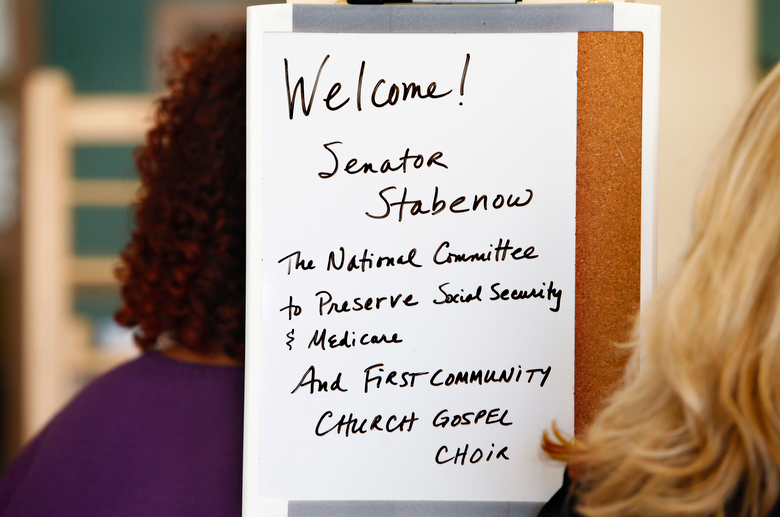 Welcome!
Senator
Stabenow
The National Committee
to Preserve Social Security
& Medicare
And First Community
Church Gospel
Choir